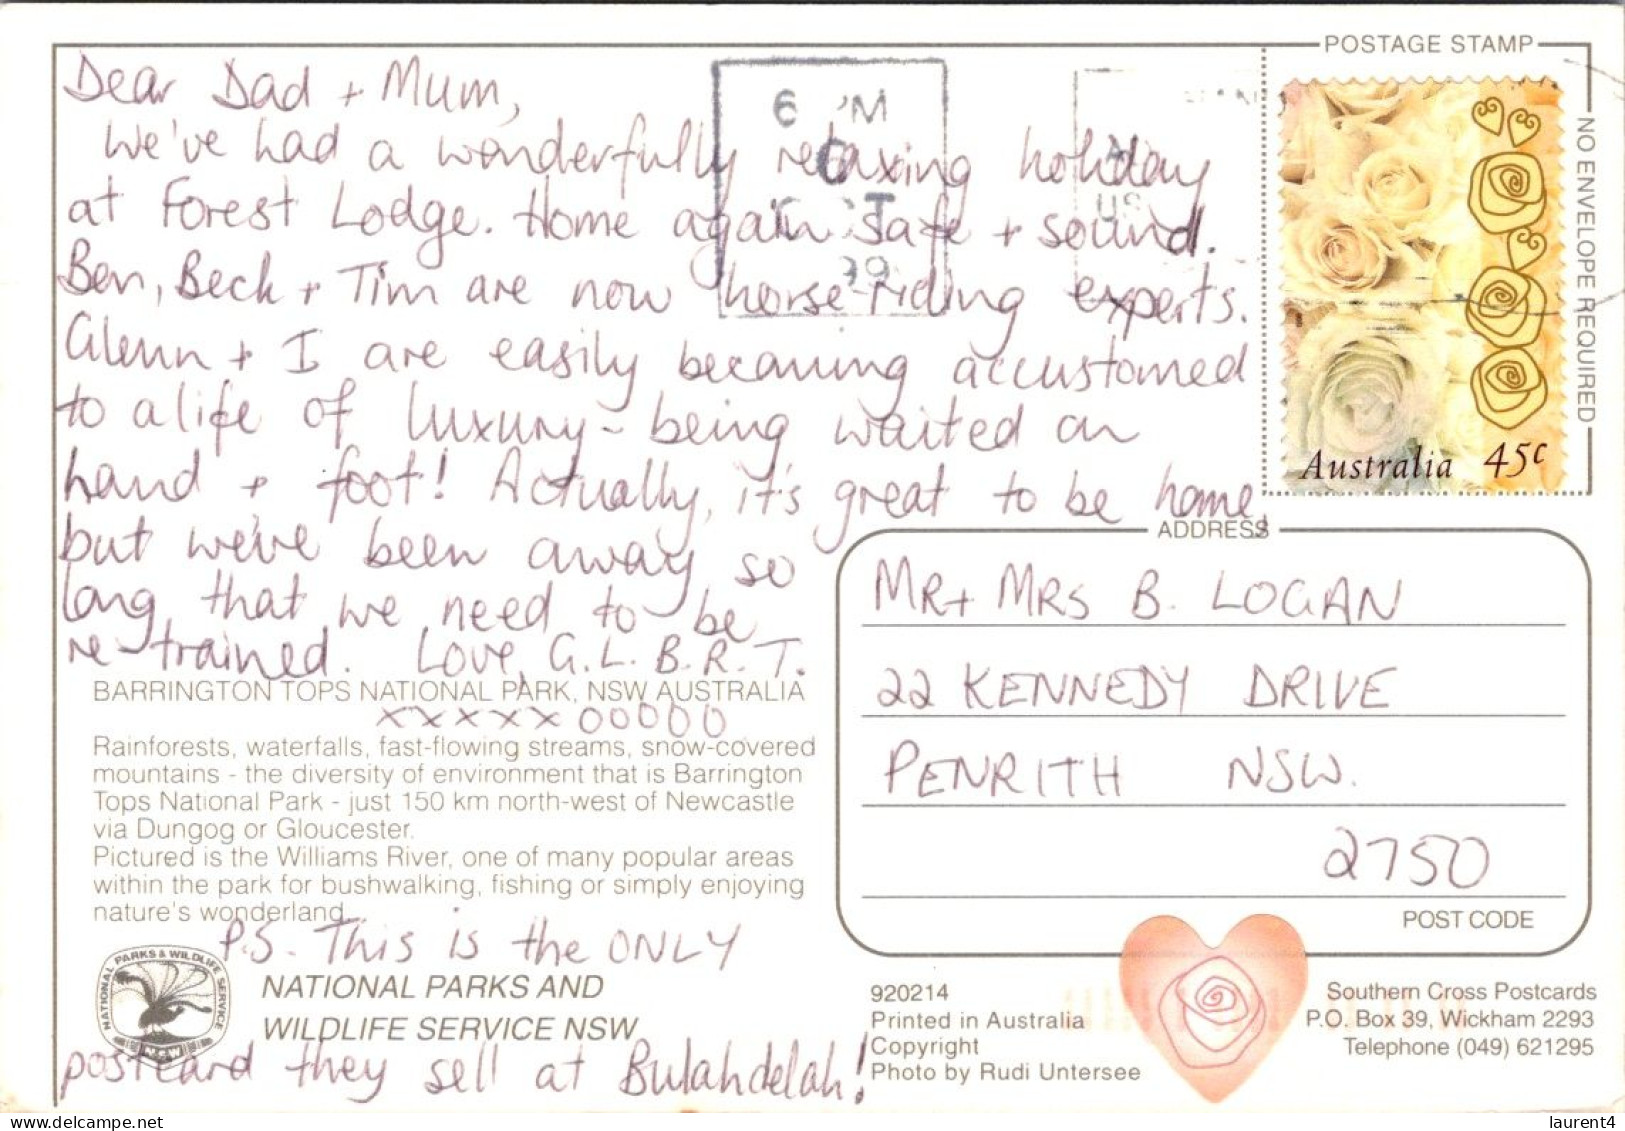 POSTAGE STAMP
NO ENVELOPE REQUIRED
Australia 45c
6 PM
Dear Dad + Mum,
We've had a wonderfully relaxing holiday
at Forest Lodge. Home again safe + sound.
Ben, Beck + Tim are now horse-riding experts.
Glenn + I are easily becoming accustomed
to a life of luxury - being waited on
hand + foot! Actually, it's great to be home,
but we've been away so
long that we need to be
re-trained. Love, G.L.B.R.T.
xxxxx00000
BARRINGTON TOPS NATIONAL PARK, NSW AUSTRALIA
Rainforests, waterfalls, fast-flowing streams, snow-covered
mountains - the diversity of environment that is Barrington
Tops National Park - just 150 km north-west of Newcastle
via Dungog or Gloucester.
Pictured is the Williams River, one of many popular areas
within the park for bushwalking, fishing or simply enjoying
nature's wonderland.
P.S. This is the ONLY
postcard they sell at Bulahdelah!
NATIONAL PARKS & WILDLIFE SERVICE
N.S.W.
NATIONAL PARKS AND
WILDLIFE SERVICE NSW
ADDRESS
MR + MRS B. LOGAN
22 KENNEDY DRIVE
PENRITH NSW.
2750
POST CODE
920214
Printed in Australia
Copyright
Photo by Rudi Untersee
Southern Cross Postcards
P.O. Box 39, Wickham 2293
Telephone (049) 621295
laurent4